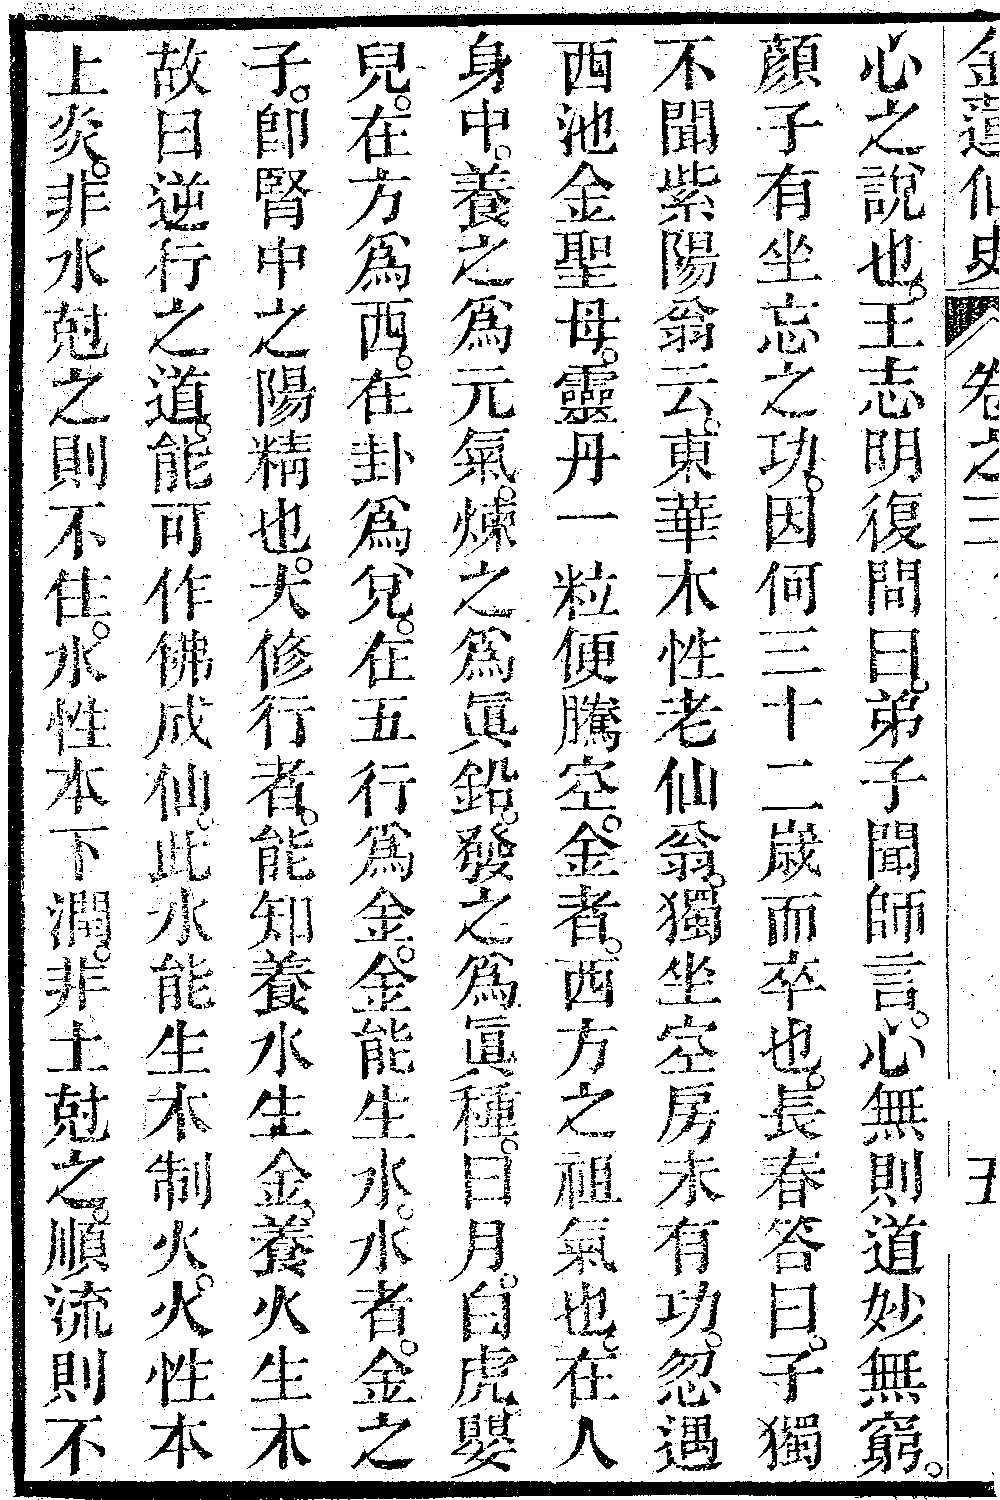 金蓮仙史 卷之二 五
心之說也。王志明復問曰。弟子聞師言。心無則道妙無窮。
顏子有坐忘之功。因何三十二歲而卒也。長春答曰。子獨
不聞紫陽翁云。東華木性老仙翁。獨坐空房未有功。忽遇
西池金聖母。靈丹一粒便騰空。金者。西方之祖氣也。在人
身中。養之爲元氣。煉之爲眞鉛。發之爲眞種。曰月。白虎。嬰
兒。在方爲西。在卦爲兌。在五行爲金。金能生水。水者。金之
子。卽腎中之陽精也。大修行者。能知養水生金。養火生木
故曰逆行之道。能可作佛成仙。此水能生木制火。火性本
上炎。非水尅之則不住。水性本下潤。非土尅之。順流則不